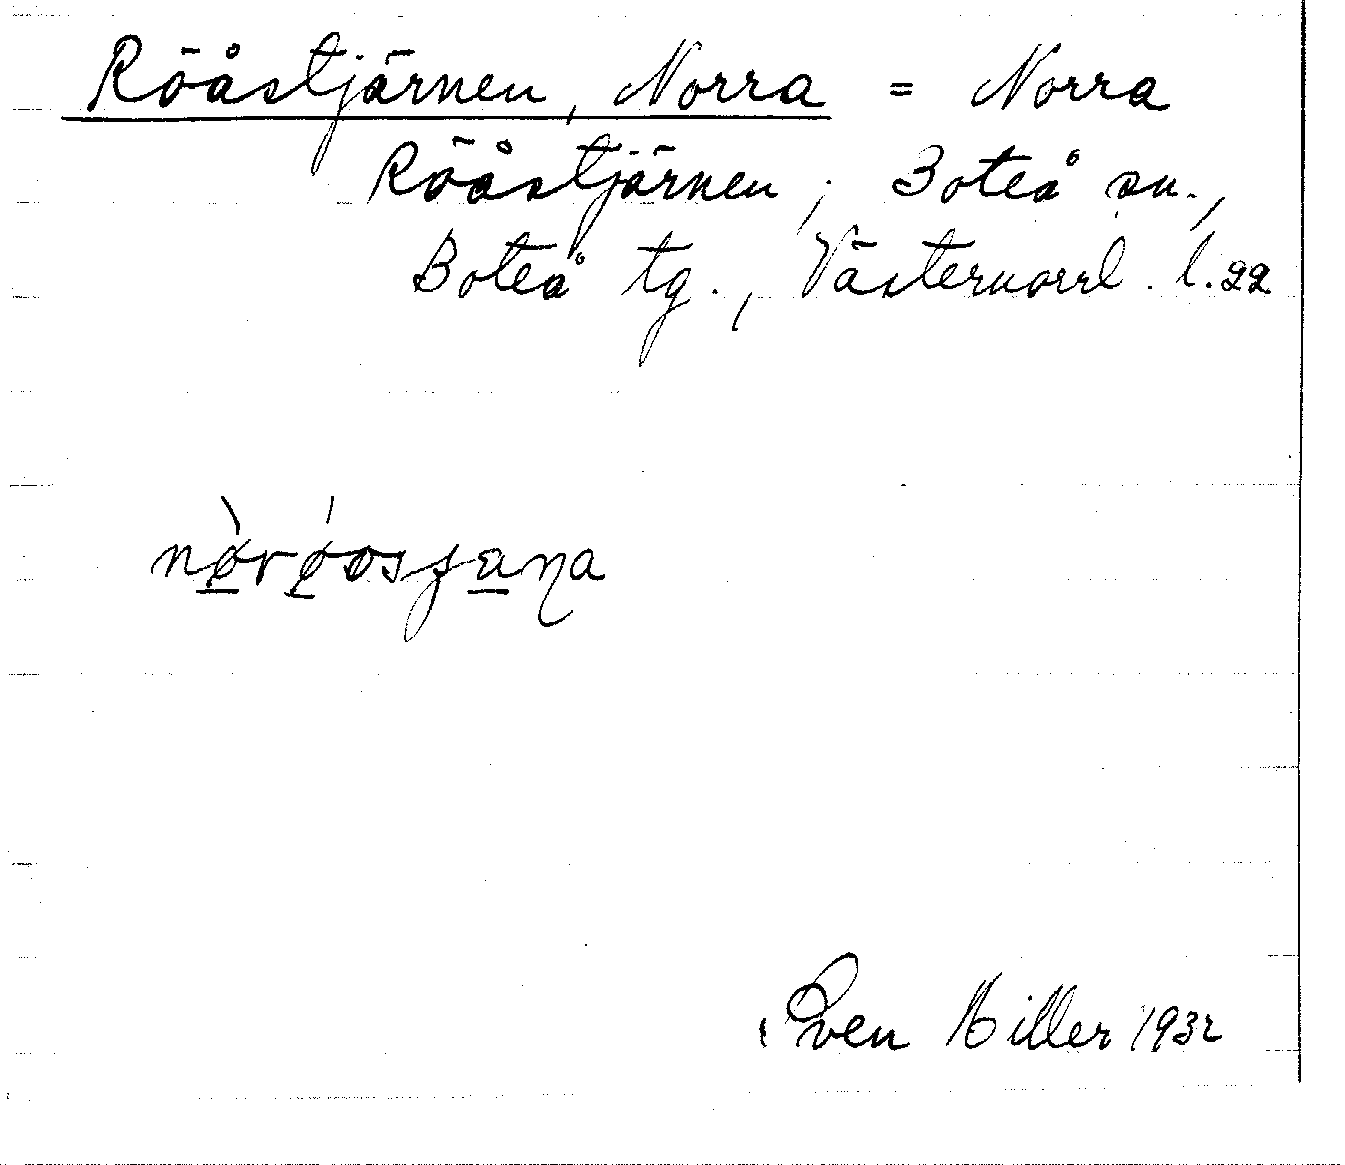 Röåstjärnen, Norra = Norra
Röåstjärnen; Boteå sn.,
Boteå tg., Västernorrl. l. 22
Sven Hiller 1932